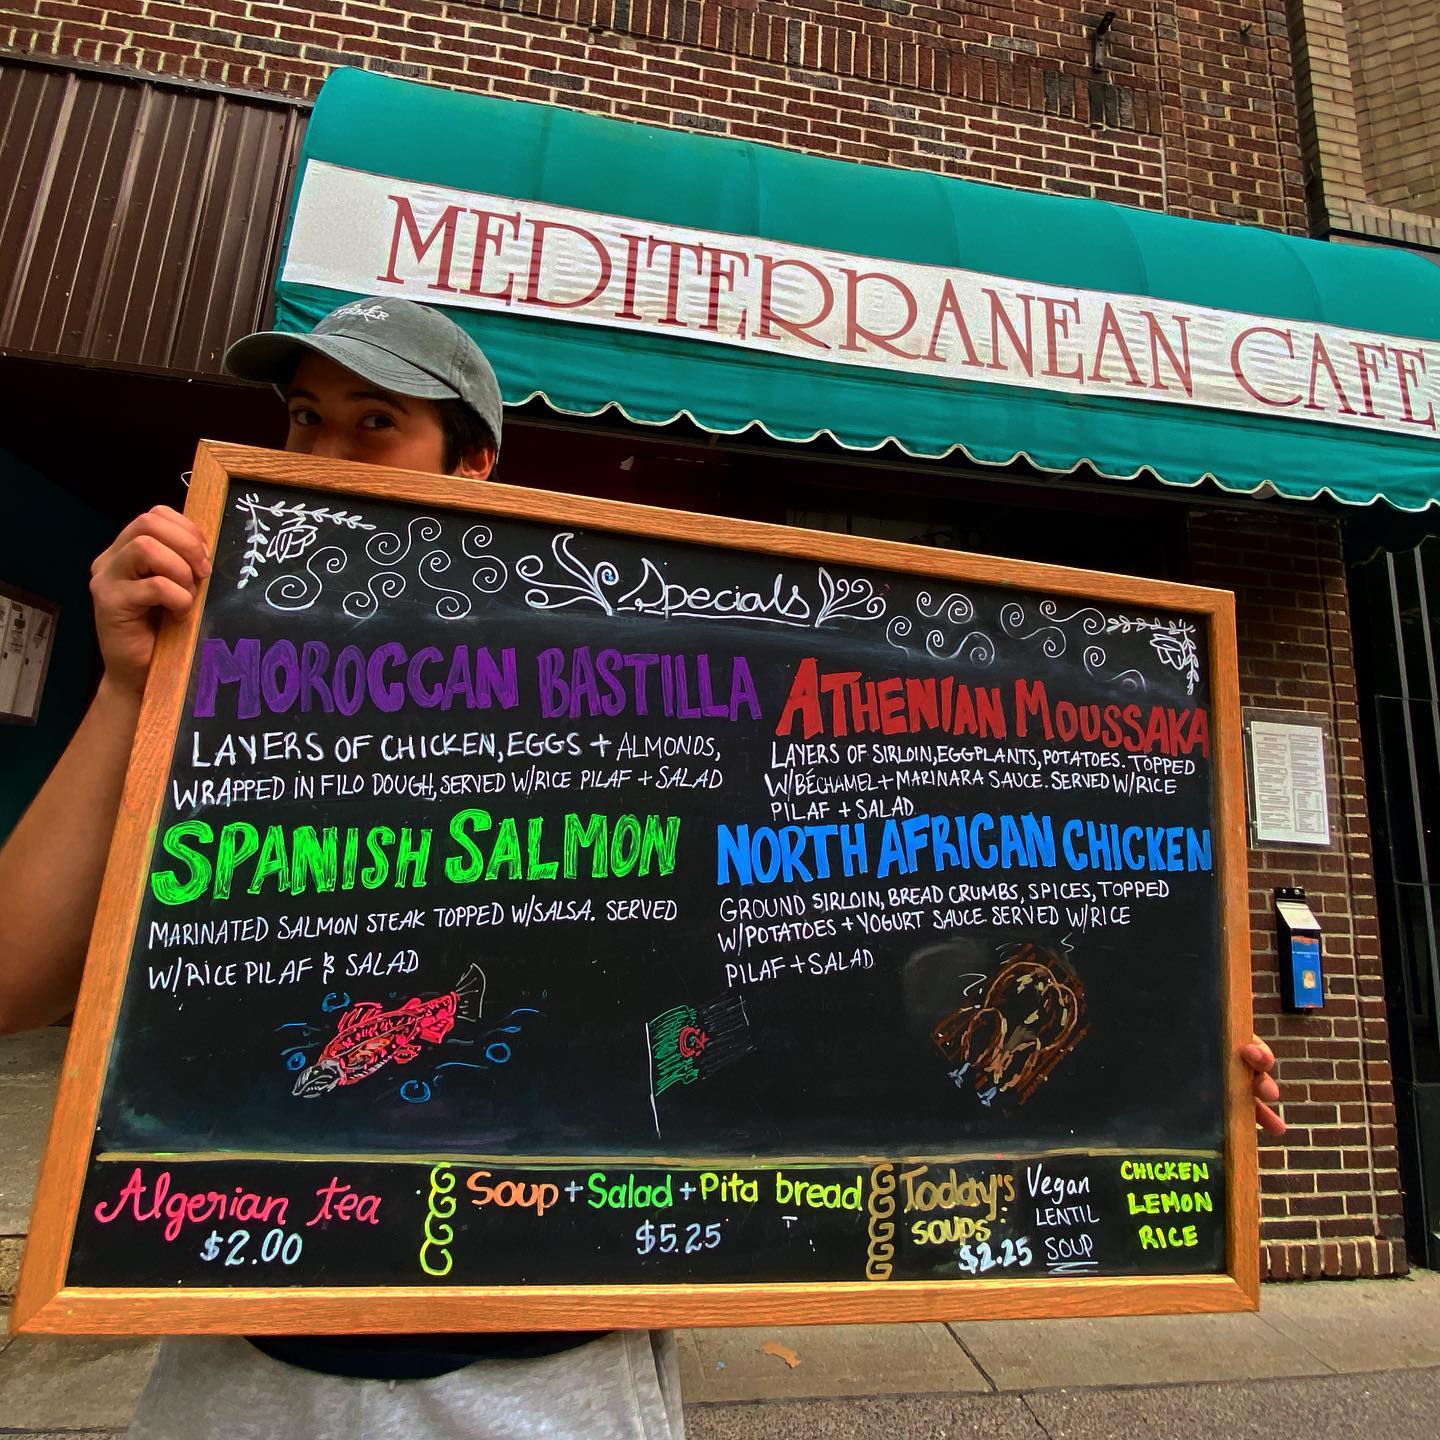 MEDITERRANEAN CAFE
Specials
MOROCCAN BASTILLA
LAYERS OF CHICKEN, EGGS + ALMONDS,
WRAPPED IN FILO DOUGH, SERVED W/RICE PILAF + SALAD
ATHENIAN MOUSSAKA
LAYERS OF SIRLOIN, EGGPLANTS, POTATOES. TOPPED
W/BÉCHAMEL + MARINARA SAUCE. SERVED W/RICE
PILAF + SALAD
SPANISH SALMON
MARINATED SALMON STEAK TOPPED W/SALSA. SERVED
W/RICE PILAF & SALAD
NORTH AFRICAN CHICKEN
GROUND SIRLOIN, BREAD CRUMBS, SPICES, TOPPED
W/POTATOES + YOGURT SAUCE SERVED W/RICE
PILAF + SALAD
Algerian tea
$2.00
Soup + Salad + Pita bread
$5.25
Today's
SOUPS:
$2.25
Vegan
LENTIL
SOUP
CHICKEN
LEMON
RICE